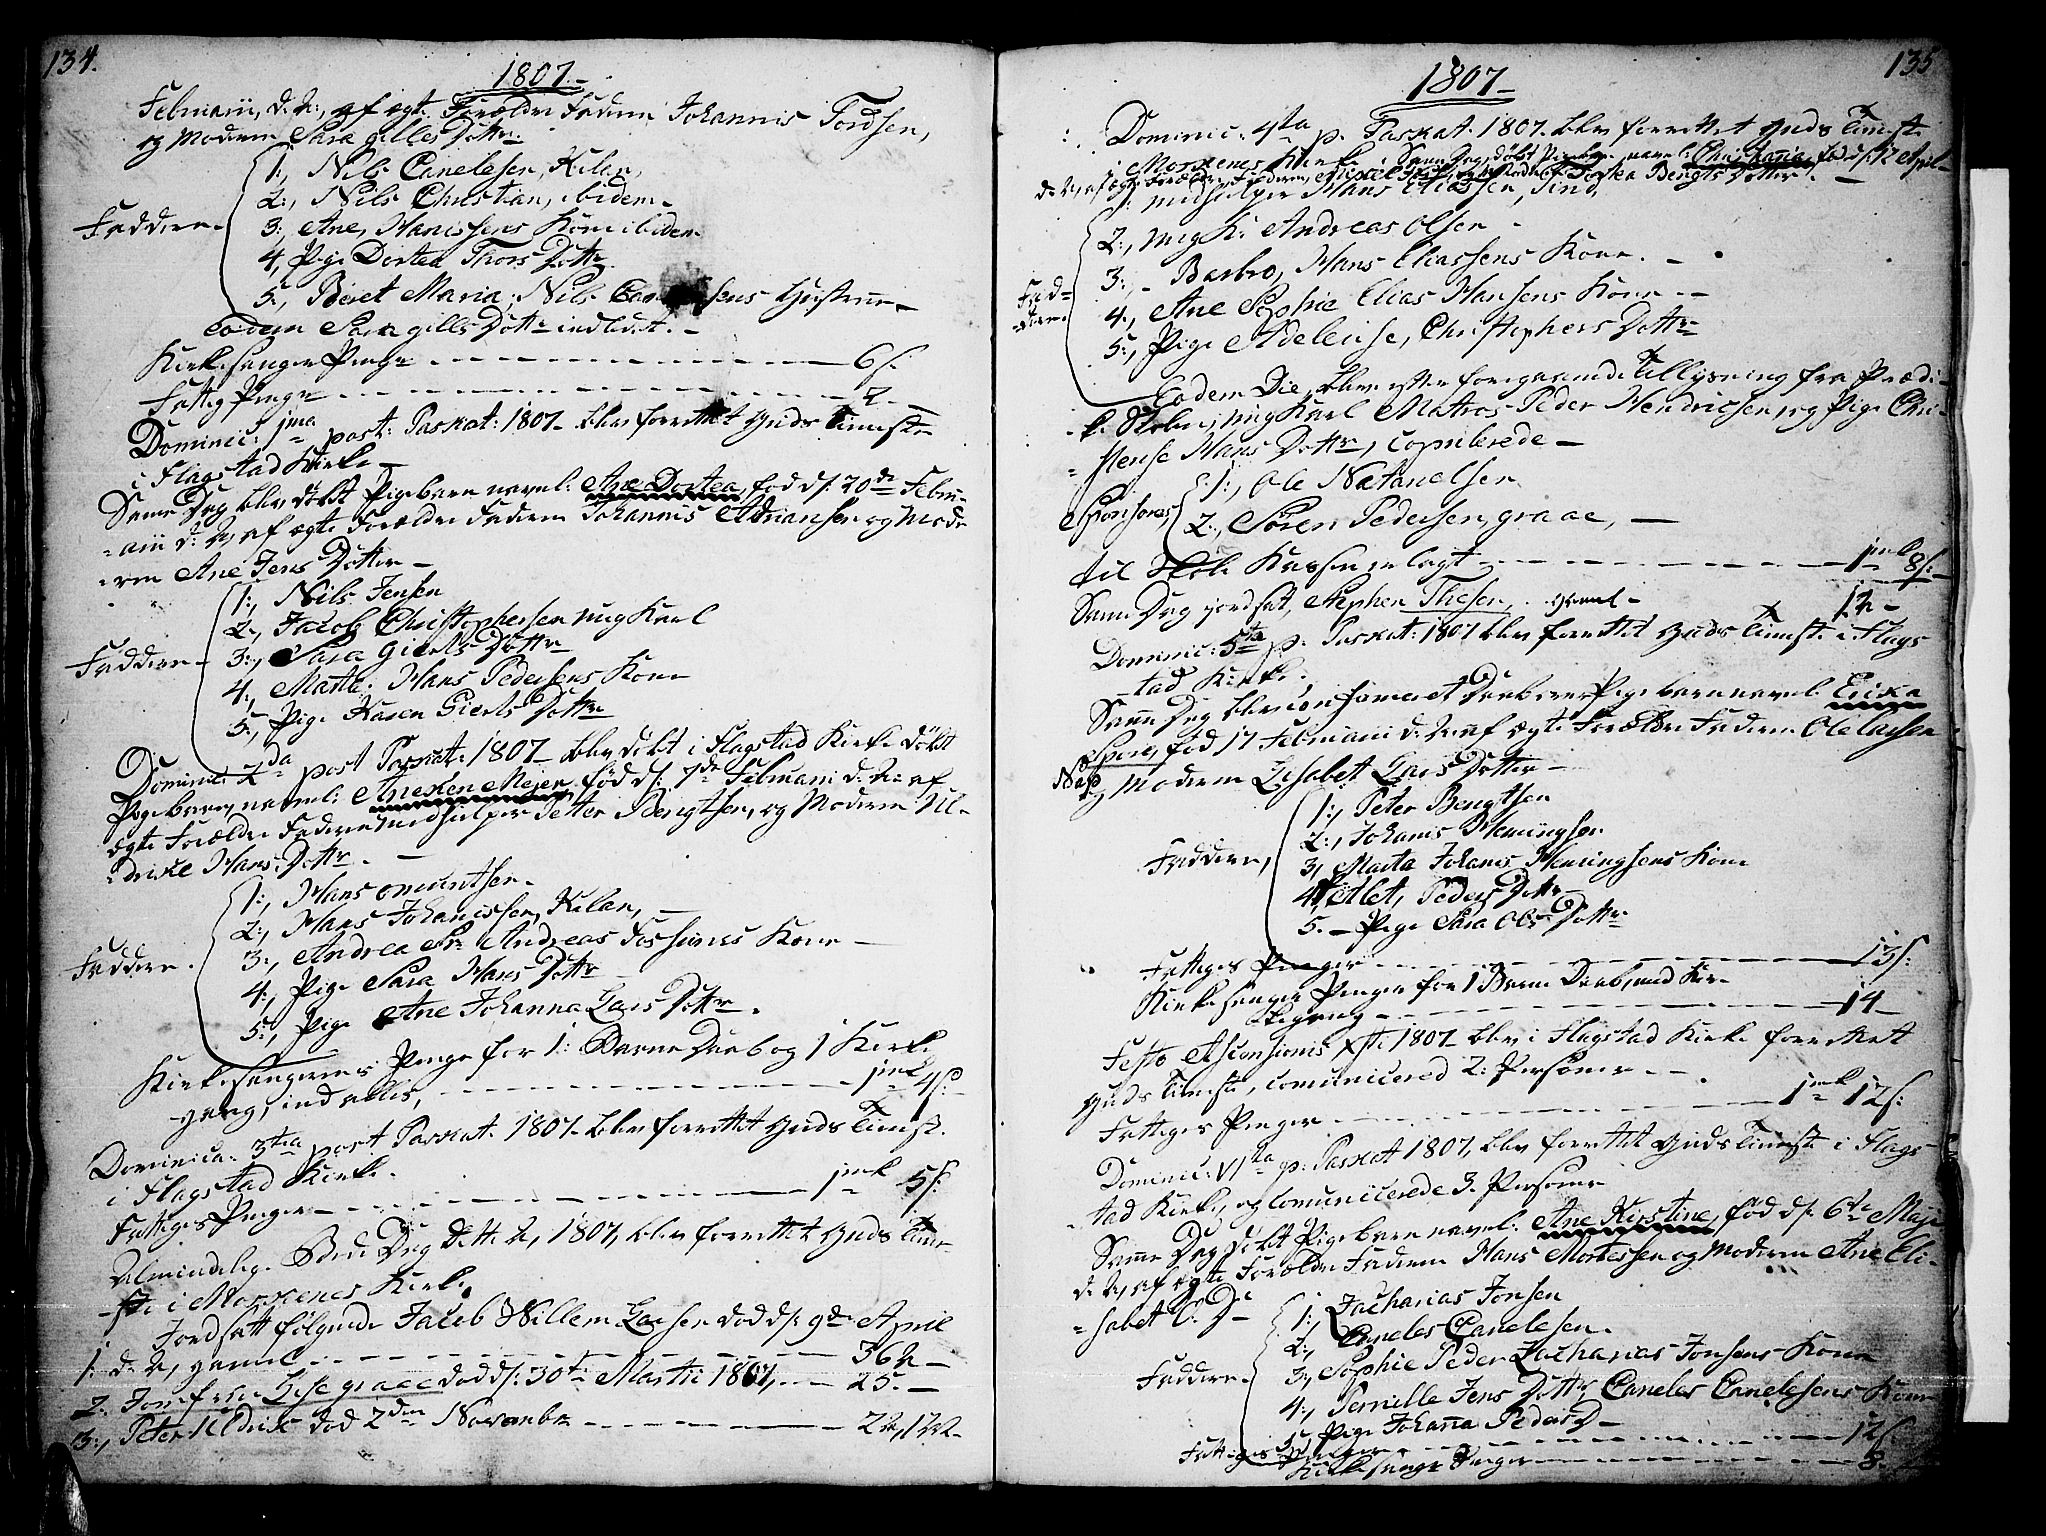 134.
1807.
Februarii, d: A:, af ægte Forældre Faderen Johannis Tordsen,
og Moderen Sara Gilles Dotter
1:, Nils Canelesen, Kilan,
2:, Nils Christian, ibidem
Faddere
3:, Ane, Hanissens Kone ibidem
4, Pige Dortea Thors Dotter
5:, Beret Maria, Nils Hustrue
eodem Sara Gills Dotter indledet.
Kirkesanger Penge 6 s:
Fattig Penge 2
Dominic: 1ma post: Paskat: 1807 blev forrettet Guds Tieneste
i Flagstad Kirke
Same Dag blev döbt Pigebarn navnl: Ane Dortea, föd d: 20de Febru-
arii d: A, af ægte Forældre Faderen Johannis Adriansen og Mode
ren Ane Jens Dotter
1:, Nils Jensen
2:, Jacob Christophersen ung Karl
Faddere
3:, Sara Gierts Dotter
4:, Marta: Hans Pedersens Kone
5:, Pige Karen Gierts Dotter
Dominic 2da post Paskat: 1807 blev döbt i Flagstad Kirke döbt
Pigebarn, navnl: Anexen Mejer, föd d: 7de Februarii d: A: af
ægte Forældre Faderen Medhielper Petter Bengtsen, og Moderen Ul-
drike Hans Dotter.
1:, Hans Omuntsen
2:, Hans Johanissen, Kilan,
Faddere.
3:, Andrea Sr Andreas Kone
4:, Pige Sara Hans Dotter
5:, Pige Ane Johanna Lars Dotter.
Kirkesangerens Penge for 1: Barne Daab og 1 Kirke
gang, ind alles, 1 mk 4 s:
Dominica: 3tia post Paskat. 1807 blev forrettet Guds Tienest.
i Flagstad Kirke.
Fattiges Penger 1 mk 5 s:
Almindelig Bede Dag dette A, 1807, blev forrettet Guds Tiene
ste i Moskenes Kirke
Jordsatt fölgende Jacob Willem Larsen död d: 9de April
1: d: A, gamel 36 A
2. Jomfrue Lise Graae död d: 30te Martii 1807, 25.
3:, Peter Uldrik död 2den Novembr 2 A,
135
1807
Dominic: 4ta p. Paskat. 1807. blev forrettet Guds Tieneste
i Moskenes Kirke i Same Dag, döbt Pigebarn, navnl: Christiania, föd d: 12 April
d: A, af ægte Forældre, Faderen, Dortea Bengts Dotter.
1: Medhielper Hans Eliassen, Sind,
2:, ung K: Andreas Olsen
3:, Barbro, Hans Eliassens Kone.
Fad-
dere.
4:, Ane Sophie Elias Hansens Kone
5:, Pige Adelense, Christophers Dotter
Eodem Die, blev efter foregaaende Tillysning fra Prædi-
ke Stolen, ung Karl Matros Peder Hendricsen, og Pige Chri-
stense Hans Dotter, copulerede
Sponsores
1:, Ole Natanelsen
2:, Sören Pedersen graae,
til Skole Kassen en lagt 1 mk 8 s:
Same Dag jordsat, Stephen Thesen, gamel 12
Dominic: 5ta p. Paskat: 1807 blev forrettet Guds Tieneste i Flags
tad Kirke.
Same Dag blev confirmeret Daab over Pigebarn navnl: Erika
Spere, föd 17 Februarii d: A af ægte Forældre Faderen Ole Larsen
og Moderen Lisabet Lars Dotter
1:, Peter Bengtsen
2:, Johanis Hemingsen
Faddere,
3, Marta Johanis Hemingsens Kone
4, Alet, Peders Dotter
5. Pige Sara Ols Dotter
Fattiges Penger 13 s:
Kirkesanger Penger for 1 Barne Daab, med Kir-
kegang 14
Festo Ascensionis Xsti 1807 blev i Flagstad Kirke forrettet
Guds Tieneste, comunicered 2: Personer
Fattiges Penger 1 mk 12 s:
Dominic: VIta p: Paskat 1807, blev forrettet Guds Tieneste i Flags
tad Kirke, og comunicerede 3. Personer
Same Dag döbt Pigebarn navnl: Ane Kirstine, föd d: 6te Maji
d: A, af ægte Forældre Faderen Hans Mortensen og Moderen Ane Eli-
sabet O: D:
1:, Zacharias Jonsen
2:, Caneles Canelesen.
Faddere.
3:, Sophie Peder Zacharias Jonsens Kone
4:, Pernille Jens Dotter, Caneles Canelesens Kone
5:, Pige Johanna Peders D
Fattiges Penger 12 s
Kirkesanger Penger 8